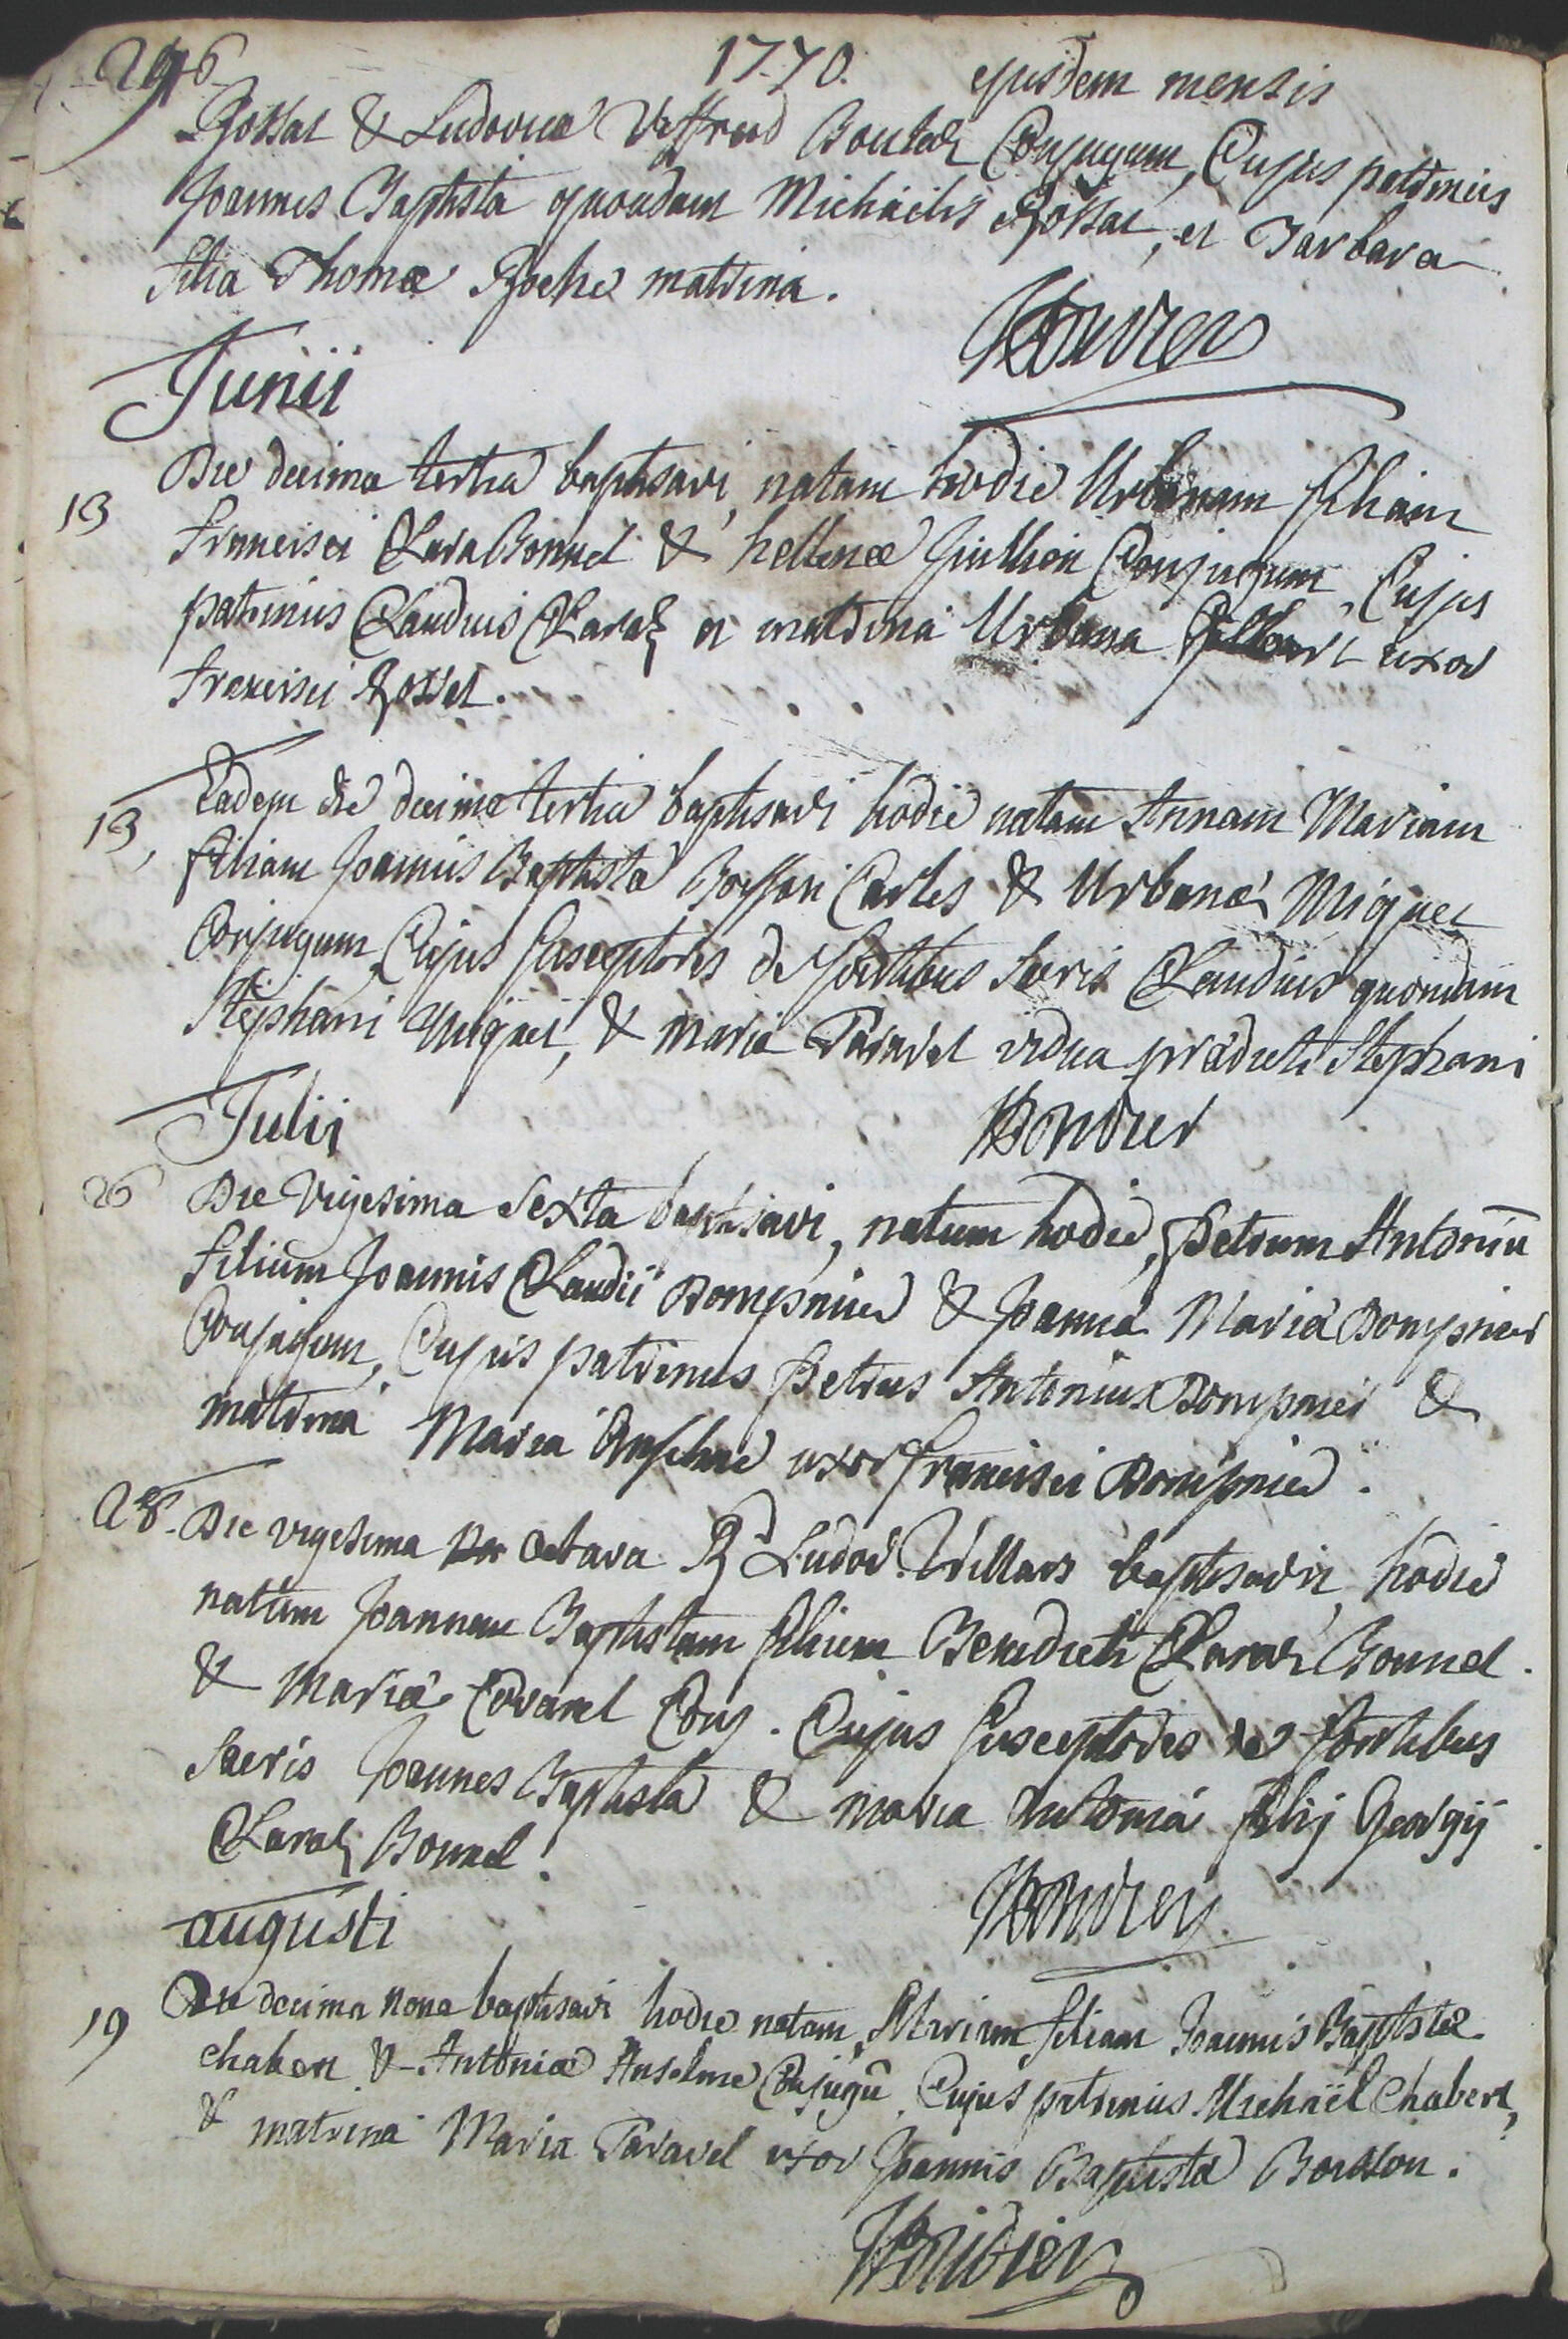 296 1770. ejusdem mensis
Rossat & Ludovicæ Viffred Boutaz Conjugum, Cujus patrinus
Joannes Baptista quondam Michaelis Rossat, et Barbara
filia Thomæ Roche matrina.
Junii
13 Die decima tertia baptisavi, natam hodie Urbanam filiam
Francisci Claraz Bonnel & hellenæ Jullien Conjugum, Cujus
patrinus Claudius Claraz et matrina Urbana uxor
Francisci Rosset.
13, Eadem die decima tertia baptisavi hodie natam Annam Mariam
filiam Joannis Baptistæ Bosson Carles & Urbanæ Miquet
Conjugum, Cujus susceptores de fontibus sacris Claudius quondam
Stephani Miquet, & Maria Paravel vidua prædicti Stephani
Julii
26 Die Vigesima Sexta baptisavi, natum hodie, Petrum Antoniū
filium Joannis Claudii Dompnier & Joannæ Mariæ Dompnier
Conjugum, Cujus patrinus Petrus Antonius Dompnier &
matrina Maria Anselme uxor Francisci Dompnier.
28. Die vigesima octava Rd Ludov. Villars baptisavit, hodie
natum Joannem Baptistam filium Benedicti Claraz Bonnel.
& Mariæ Covarel Conj. Cujus susceptores de fontibus
sacris Joannes Baptista & Maria Antonia filij Georgij
Claraz Bonnel.
augusti
19 Die decima nona baptisavi hodie natam, Mariam filiam Joannis Baptistæ
chabert & Antoniæ Anselme Conjugū, Cujus patrinus Michaël Chabert,
& matrina Maria Paravel uxor Joannis Baptistæ Bosson.